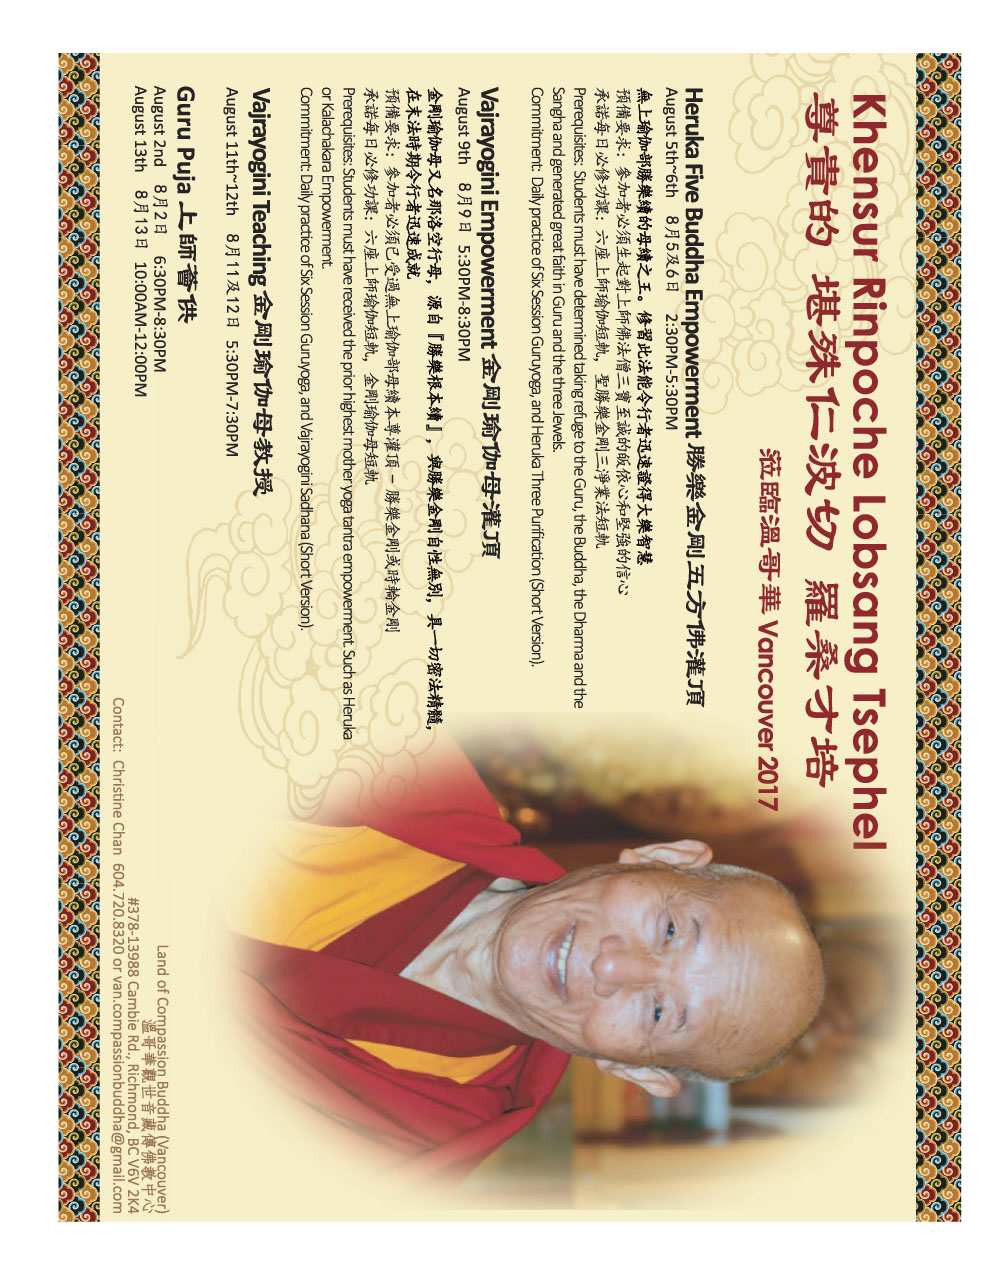 Khensur Rinpoche Lobsang Tsephel
尊貴的 堪殊仁波切 羅桑才培
蒞臨溫哥華 Vancouver 2017
Heruka Five Buddha Empowerment 勝樂金剛五方佛灌頂
August 5th~6th 8月5及6日 2:30PM-5:30PM
無上瑜伽部勝樂續的母續之王。修習此法能令行者迅速證得大樂智慧
預備要求：參加者必須生起對上師佛法僧三寶至誠的皈依心和堅強的信心
承諾每日必修功課：六座上師瑜伽短軌，聖勝樂金剛三淨業法短軌
Prerequisites: Students must have determined taking refuge to the Guru, the Buddha, the Dharma and the
Sangha and generated great faith in Guru and the three Jewels.
Commitment: Daily practice of Six Session Guruyoga, and Heruka Three Purification (Short Version).
Vajrayogini Empowerment 金剛瑜伽母灌頂
August 9th 8月9日 5:30PM-8:30PM
金剛瑜伽母又名那洛空行母，源自『勝樂根本續』，與勝樂金剛自性無別，具一切密法精髓，
在末法時期令行者迅速成就
預備要求：參加者必須已受過無上瑜伽部母續本尊灌頂－勝樂金剛或時輪金剛
承諾每日必修功課：六座上師瑜伽短軌，金剛瑜伽母短軌
Prerequisites: Students must have received the prior highest mother yoga tantra empowerment. Such as Heruka
or Kalachakara Empowerment.
Commitment: Daily practice of Six Session Guruyoga, and Vajrayogini Sadhana (Short Version).
Vajrayogini Teaching 金剛瑜伽母教授
August 11th~12th 8月11及12日 5:30PM-7:30PM
Guru Puja 上師薈供
August 2nd 8月2日 6:30PM-8:30PM
August 13th 8月13日 10:00AM-12:00PM
Land of Compassion Buddha (Vancouver)
溫哥華觀世音藏傳佛教中心
#378-13988 Cambie Rd., Richmond, BC V6V 2K4
Contact: Christine Chan 604.720.8320 or van.compassionbuddha@gmail.com